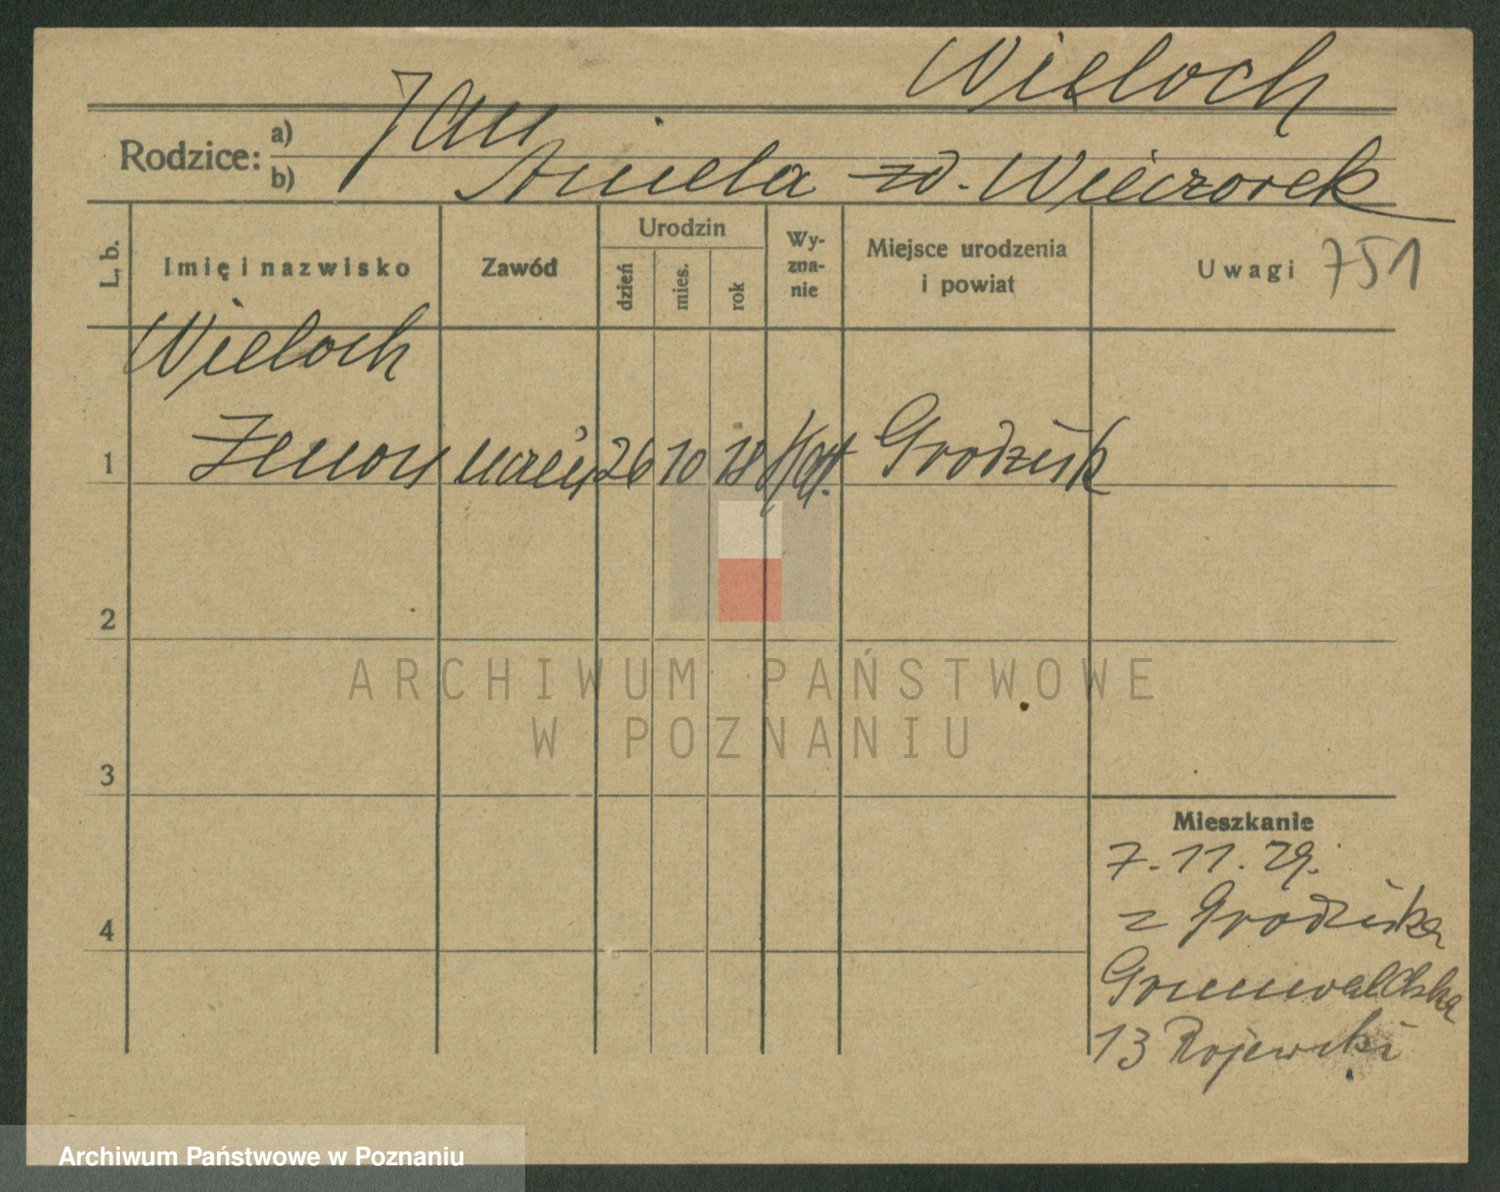 Wieloch
Rodzice: a) Jan
b) Aniela zd. Wieczorek
L. b. Imię i nazwisko Zawód Urodzin dzień mies. rok Wy-zna-nie Miejsce urodzenia i powiat Uwagi 751
Wieloch
1 Zenon uczeń 26 10 18 Grodzisk
2
ARCHIWUM PAŃSTWOWE
W POZNANIU
3
Mieszkanie
7. 11. 29.
4 z Grodziska
Grunwaldzka
13 Rojewski
Archiwum Państwowe w Poznaniu